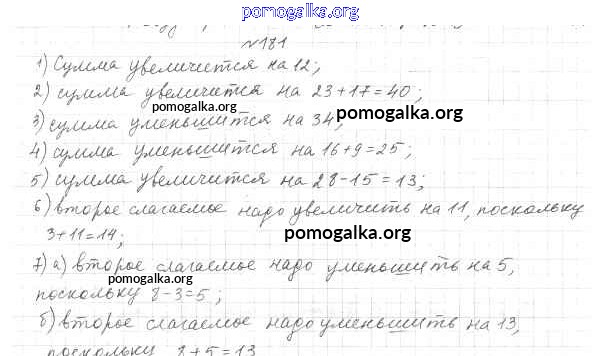 pomogalka.org
№181
1) Сумма увеличится на 12;
2) сумма увеличится на 23+17=40;
pomogalka.org
pomogalka.org
3) сумма уменьшится на 34;
4) сумма уменьшится на 16+9=25;
5) сумма увеличится на 28-15=13;
6) второе слагаемое надо увеличить на 11, поскольку
3+11=14;
pomogalka.org
7) а) второе слагаемое надо уменьшить на 5,
pomogalka.org
поскольку 8-3=5;
б) второе слагаемое надо уменьшить на 13,
поскольку 8+5=13